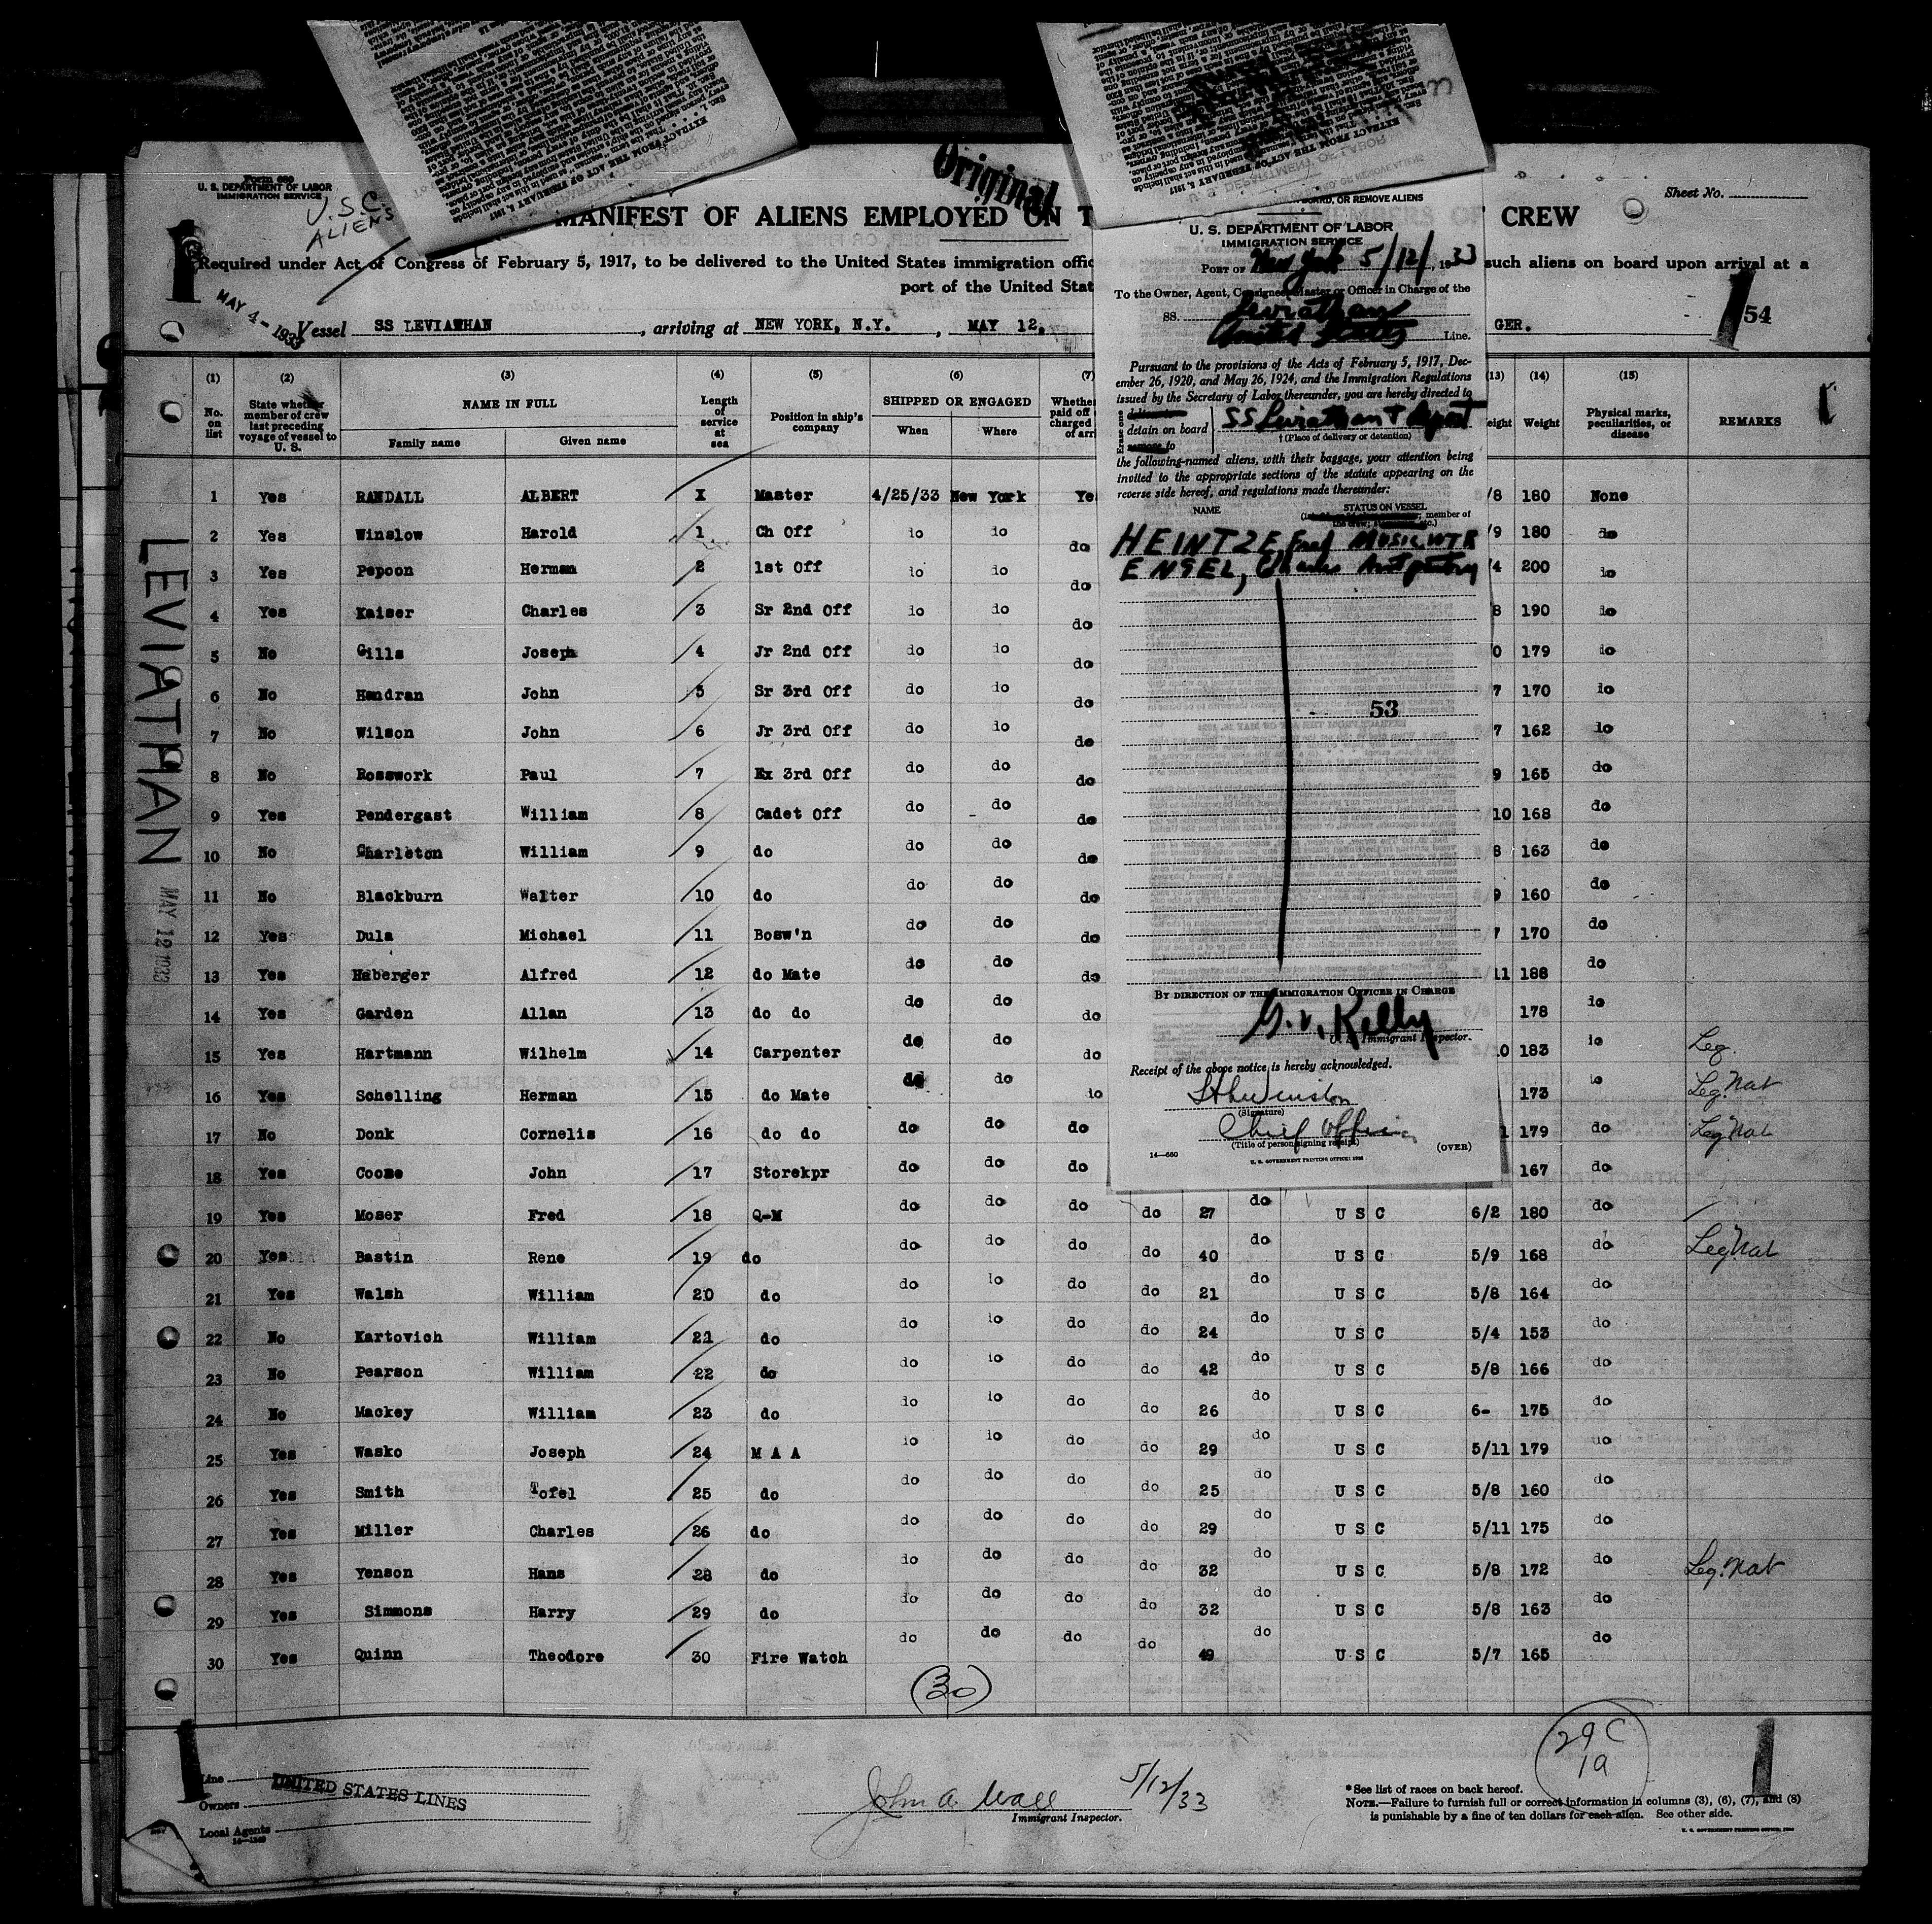 Form 680
U. S. DEPARTMENT OF LABOR
IMMIGRATION SERVICE
U.S.C.
ALIENS
Original
Sheet No.
MANIFEST OF ALIENS EMPLOYED ON T
MEMBERS OF CREW
Required under Act of Congress of February 5, 1917, to be delivered to the United States immigration offic
such aliens on board upon arrival at a
port of the United Stat
MAY 4 - 1933
Vessel SS LEVIATHAN, arriving at NEW YORK, N.Y., MAY 12,
GER.
54
(1) (2) (3) (4) (5) (6) (7) (13) (14) (15)
No. on list
State whether member of crew last preceding voyage of vessel to U. S.
NAME IN FULL
Family name Given name
Length of service at sea
Position in ship's company
SHIPPED OR ENGAGED
When Where
Whether paid off charged of arri
eight Weight
Physical marks, peculiarities, or disease
REMARKS
1 Yes RANDALL ALBERT X Master 4/25/33 New York Ye /8 180 None
2 Yes Winslow Harold 1 Ch Off do do do /9 180 do
3 Yes Pepoon Herman 2 1st Off do do do /4 200 do
4 Yes Kaiser Charles 3 Sr 2nd Off do do do 8 190 do
5 No Gills Joseph 4 Jr 2nd Off do do do 0 179 do
6 No Hendran John 5 Sr 3rd Off do do do 7 170 do
7 No Wilson John 6 Jr 3rd Off do do do 7 162 do
8 No Rosswork Paul 7 Ex 3rd Off do do do 9 165 do
9 Yes Pendergast William 8 Cadet Off do - do 10 168 do
10 No Charleton William 9 do do do do 8 163 do
11 No Blackburn Walter 10 do do do do 9 160 do
12 Yes Dula Michael 11 Bosw'n do do do 7 170 do
13 Yes Haberger Alfred 12 do Mate do do do /11 188 do
14 Yes Garden Allan 13 do do do do do 178 do
15 Yes Hartmann Wilhelm 14 Carpenter do do do 10 183 do Leg.
16 Yes Schelling Herman 15 do Mate do do do 173 do Leg. Nat
17 No Donk Cornelis 16 do do do do do 179 do Leg Nat
18 Yes Coome John 17 Storekpr do do do 167 do
19 Yes Moser Fred 18 Q-M do do do do 27 do U S C 6/2 180 do
20 Yes Bastin Rene 19 do do do do do 40 do U S C 5/9 168 do Leg Nat
21 Yes Walsh William 20 do do do do do 21 do U S C 5/8 164 do
22 No Kartovich William 21 do do do do do 24 do U S C 5/4 153 do
23 No Pearson William 22 do do do do do 42 do U S C 5/8 166 do
24 No Mackey William 23 do do do do do 26 do U S C 6- 175 do
25 Yes Wasko Joseph 24 M A A do do do do 29 do U S C 5/11 179 do
26 Yes Smith Tofel 25 do do do do do 25 do U S C 5/8 160 do
27 Yes Miller Charles 26 do do do do do 29 do U S C 5/11 175 do
28 Yes Yenson Hans 28 do do do do do 32 do U S C 5/8 172 do Leg. Nat
29 Yes Simmons Harry 29 do do do do do 32 do U S C 5/8 163 do
30 Yes Quinn Theodore 30 Fire Watch do do do do 49 do U S C 5/7 165 do
(30)
29 C
1a
LEVIATHAN
MAY 12 1933
Line
UNITED STATES LINES
Owners
Local Agents
John A Wall 5/12/33
Immigrant Inspector.
*See list of races on back hereof.
NOTE.—Failure to furnish full or correct information in columns (3), (6), (7), and (8)
is punishable by a fine of ten dollars for each alien. See other side.
BOARD, OR REMOVE ALIENS
U. S. DEPARTMENT OF LABOR
IMMIGRATION SERVICE
PORT OF New York 5/12/, 1933
To the Owner, Agent, Consignee, Master or Officer in Charge of the
SS. Leviathan
United States Line.
Pursuant to the provisions of the Acts of February 5, 1917, Dec-
ember 26, 1920, and May 26, 1924, and the Immigration Regulations
issued by the Secretary of Labor thereunder, you are hereby directed to
Erase one
deliver to
detain on board
remove to
SS Leviathan + deport
† (Place of delivery or detention)
the following-named aliens, with their baggage, your attention being
invited to the appropriate sections of the statute appearing on the
reverse side hereof, and regulations made thereunder:
NAME STATUS ON VESSEL
member of
HEINTZE, Fred MUSIC. WTR
ENGEL, Charles Asst pantry
53
BY DIRECTION OF THE IMMIGRATION OFFICER IN CHARGE
G. V. Kelly
U. S. Immigrant Inspector.
Receipt of the above notice is hereby acknowledged.
(Signature)
Chief Officer
(Title of person signing receipt)
14—660
(OVER)
U. S. GOVERNMENT PRINTING OFFICE
EXTRACT FROM THE ACT OF FEBRUARY 5, 1917
EXTRACT FROM THE ACT OF FEBRUARY 5, 1917